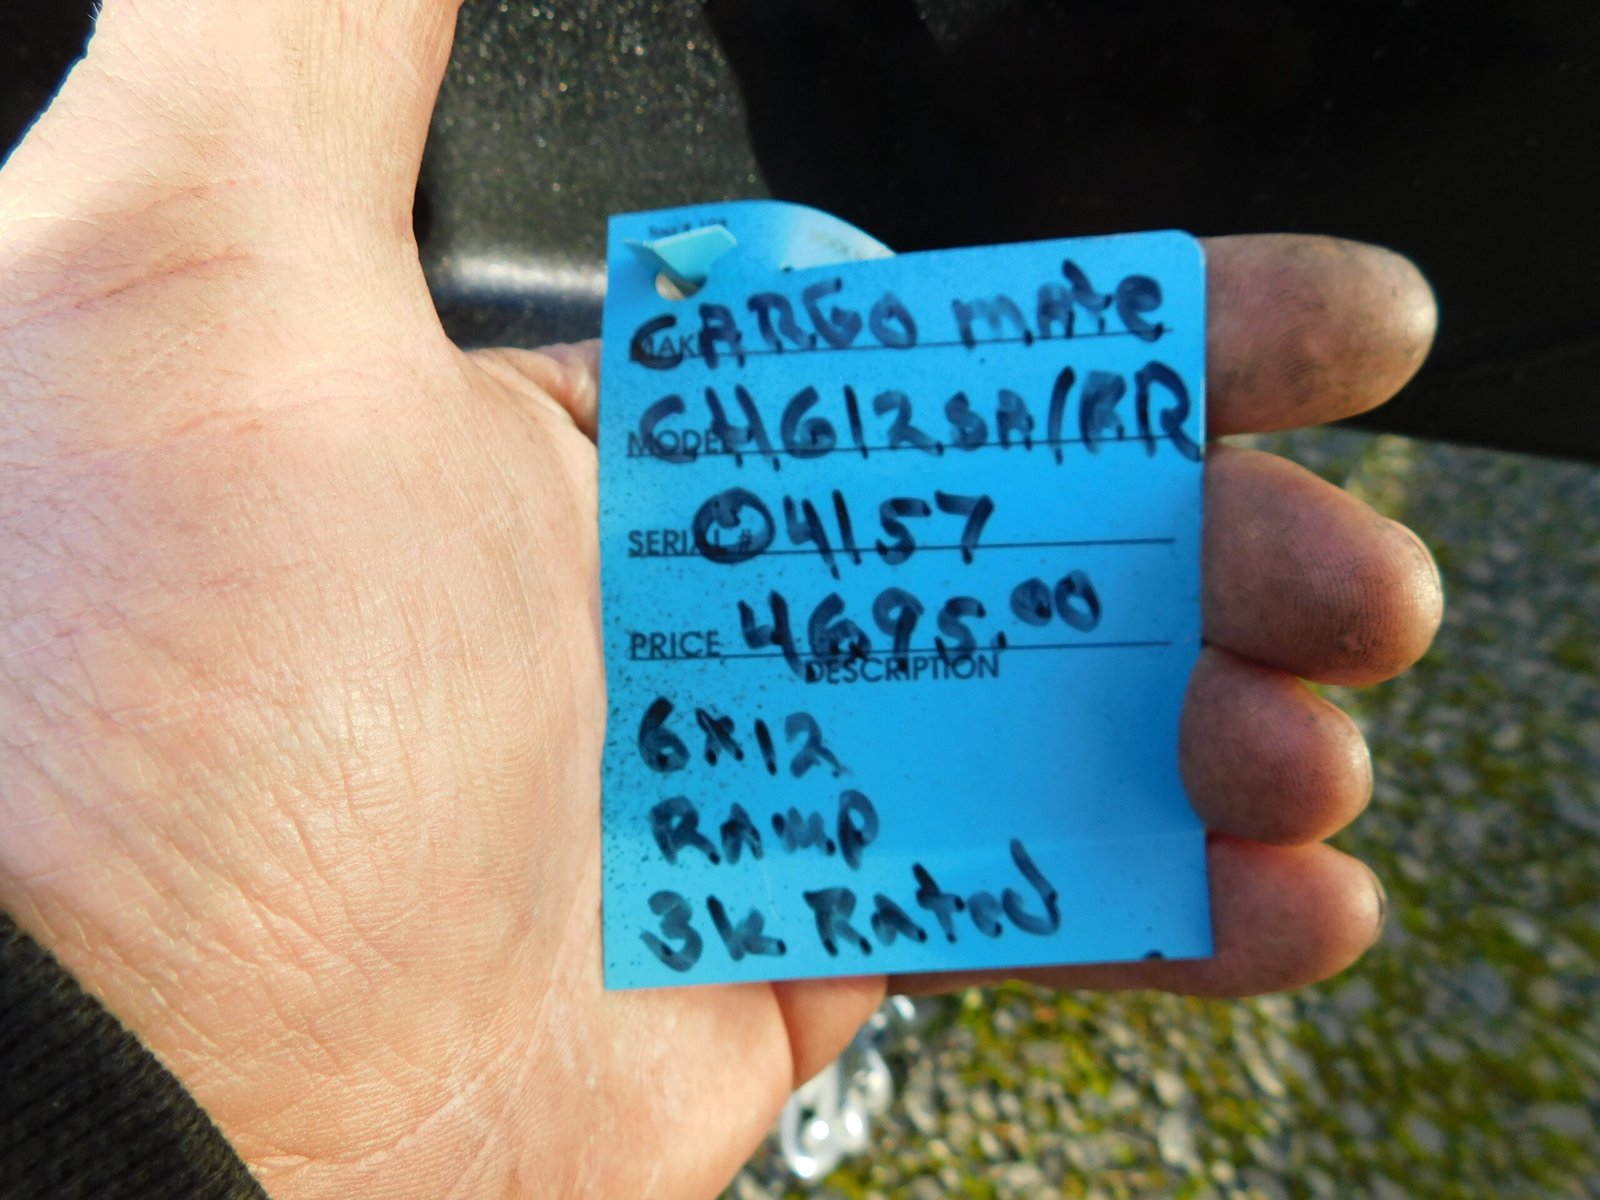 MAKE CARGO mAte
MODEL CH612SA/RR
SERIAL # 04157
PRICE 4695.00
DESCRIPTION
6x12
RAmp
3k Rated